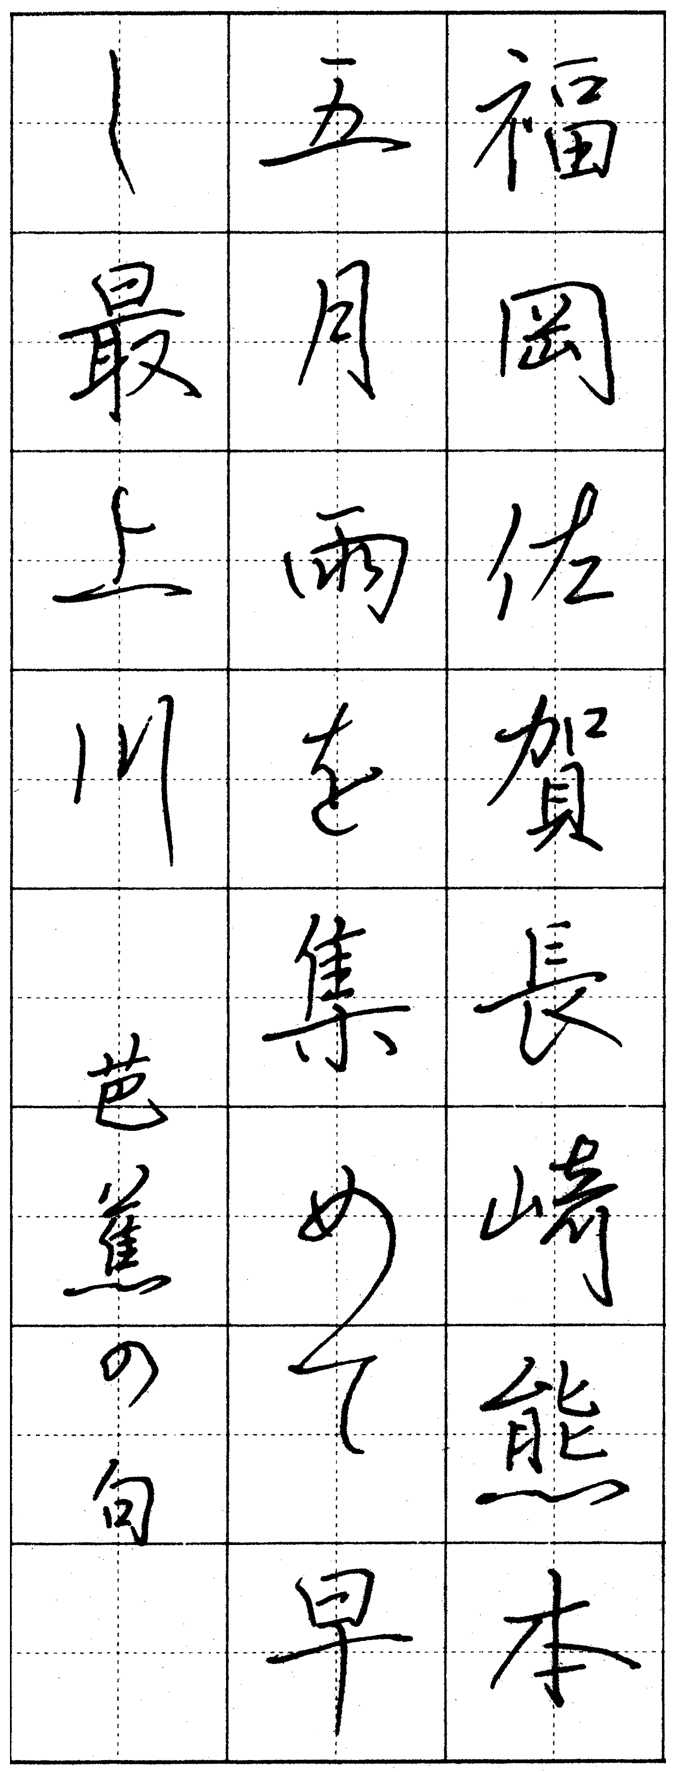 福岡佐賀長崎熊本
五月雨を集めて早
し最上川 芭蕉の句